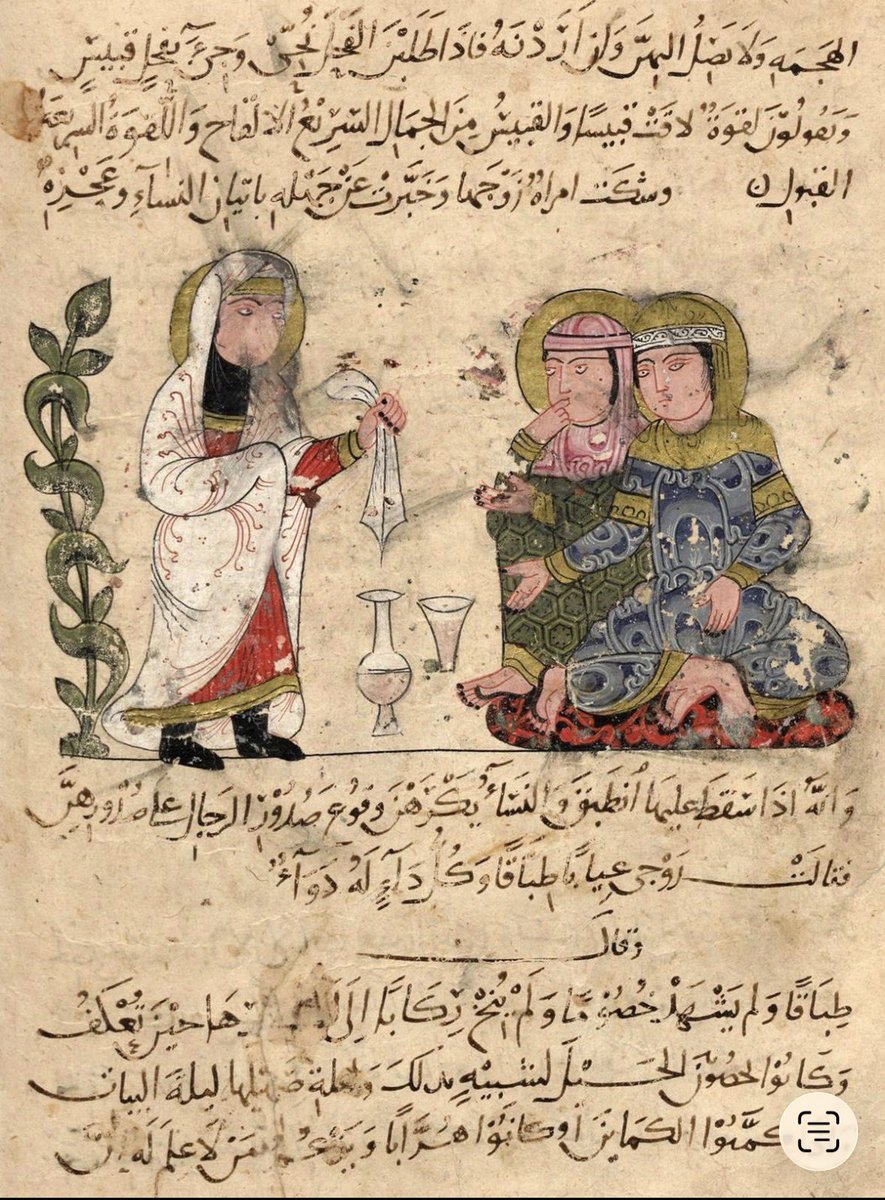 الهجمه ولا يصل اليهن وان اردنه فاذا طلبن الفحل نحى وجىء بفحل قبيس
ويقولون لقوة لاقت قبيسا والقبيس من الجمال السريع الالقاح واللقوة السريعة
القبول وشكت امراة زوجها وخبرت عن جهله باتيان النساء وعجزه
وانه اذا سقط عليها انطبق والنساء يكرهن وقوع صدور الرجال على صدورهن
فقالت زوجى عيايا طباقا وكل داء له دواء
وقال
طباقا ولم يشهد خصوما ولم ينخ ركابا الى ها حين تعلف
وكانوا يخصون الخيل لشبيه بذلك ولعلة صهيلها ليلة البيات
كمنوا الكماين او كانوا هرابا ويزعم من لا علم له ان